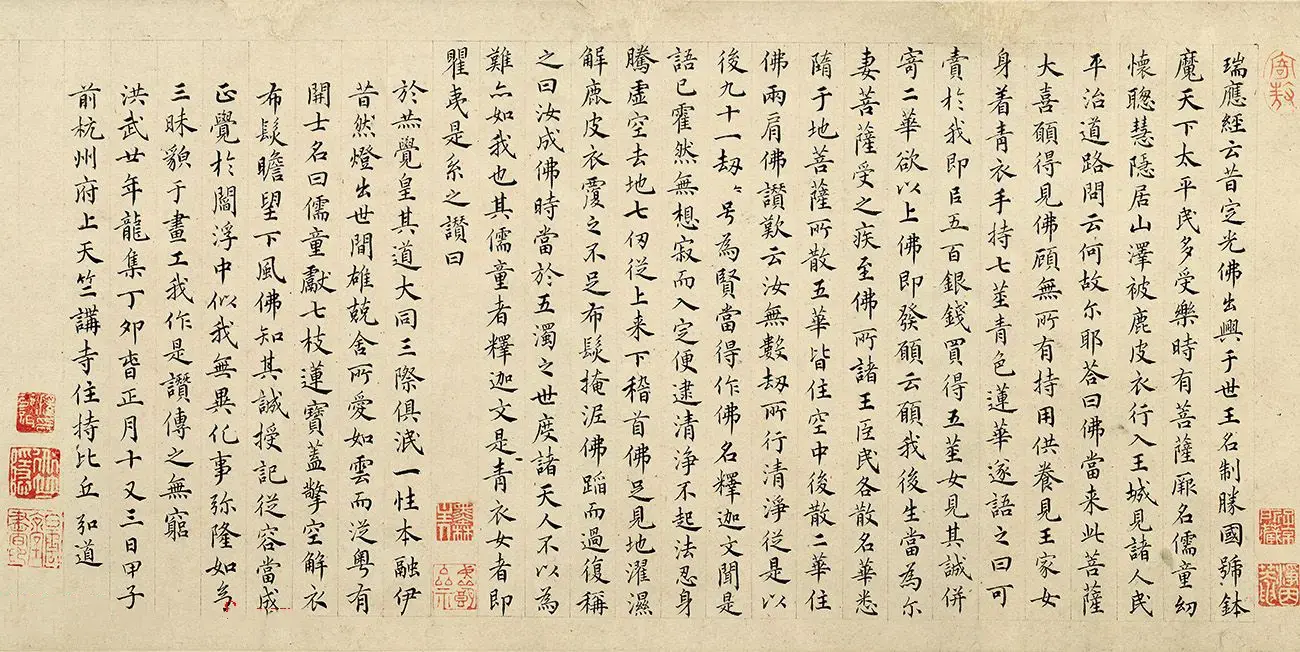 瑞應經云昔定光佛出興于世王名制勝國號鉢
魔天下太平民多受樂時有菩薩厥名儒童幼
懷聰慧隱居山澤被鹿皮衣行入王城見諸人民
平治道路問云何故尔耶荅曰佛當来此菩薩
大喜願得見佛顧無所有持用供養見王家女
身着青衣手持七莖青色蓮華逐語之曰可
賣於我即㠯五百銀錢買得五莖女見其誠併
寄二華欲以上佛即發願云願我後生當為尔
妻菩薩受之疾至佛所諸王臣民各散名華悉
隋于地菩薩所散五華皆住空中後散二華住
佛兩肩佛讚歎云汝無數劫所行清淨從是以
後九十一劫〻号為賢當得作佛名釋迦文聞是
語已霍然無想寂而入定便逮清淨不起法忍身
騰虛空去地七仞從上来下稽首佛足見地濯濕
解鹿皮衣覆之不足布髮掩泥佛蹈而過復稱
之曰汝成佛時當於五濁之世度諸天人不以為
難亦如我也其儒童者釋迦文是青衣女者即
瞿夷是系之讚曰
於烝覺皇其道大同三際俱泯一性本融伊
昔然燈出世間雄兢舍所愛如雲而從粤有
開士名曰儒童獻七枝蓮寶蓋擎空解衣
布髮瞻望下風佛知其誠授記從容當成
正覺於閻浮中似我無異化事弥隆如是
三昧貌于畫工我作是讚傳之無窮
洪武廿年龍集丁卯旹正月十又三日甲子
前杭州府上天竺講寺住持比丘 弘道